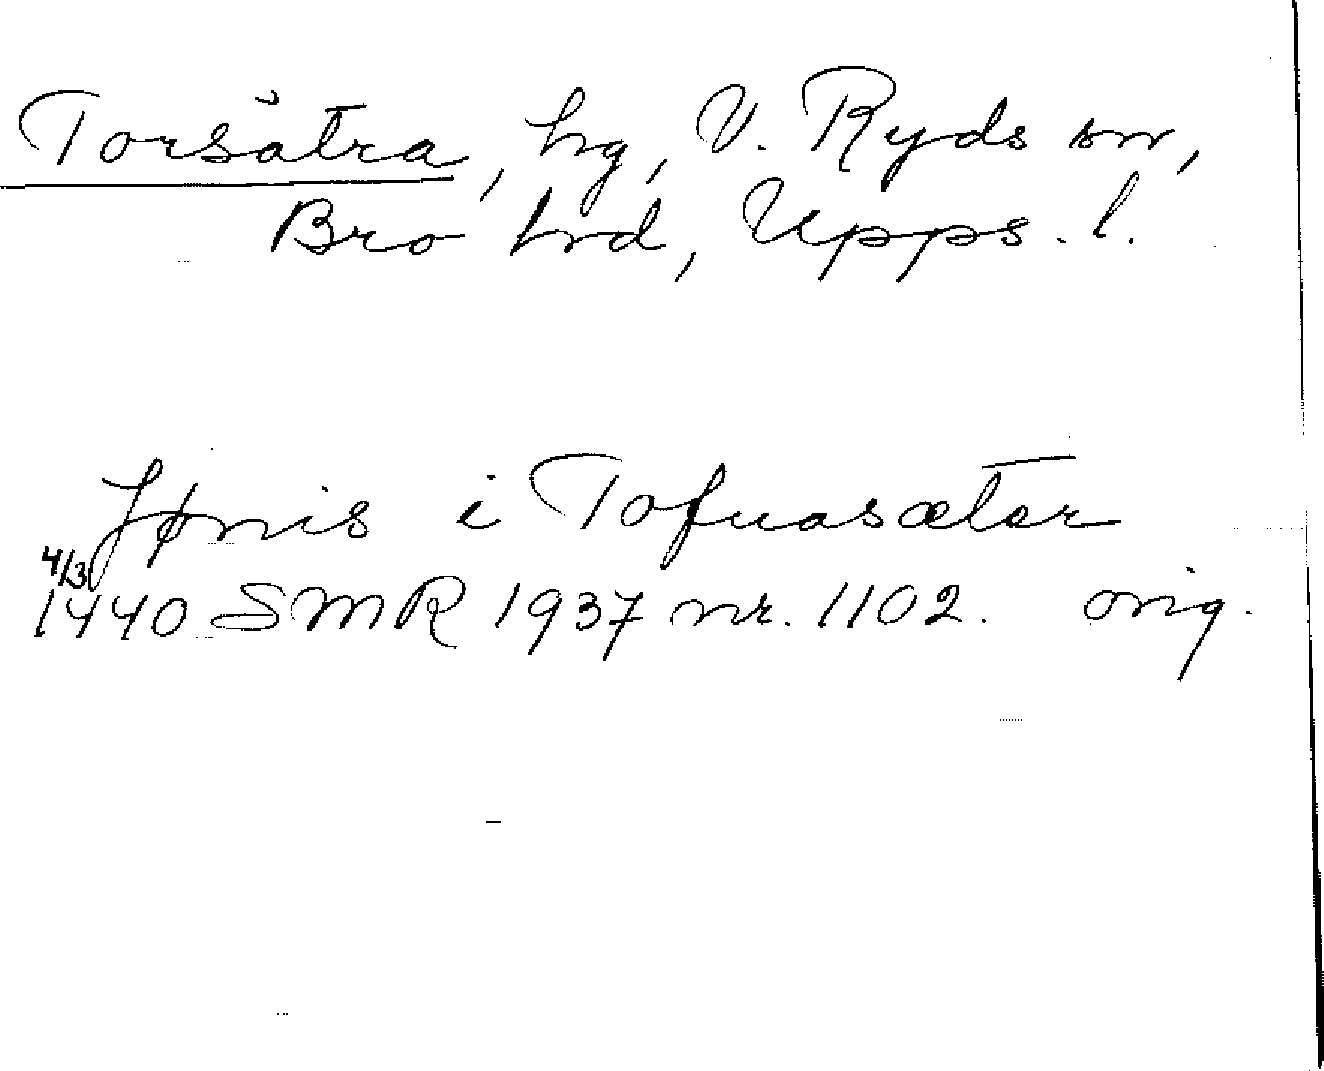 Torsätra, hg, V. Ryds sn,
Bro hrd, Upps. l.
Jønis i Tofuasæter
4/3
1440 SMR 1937 nr. 1102. orig.